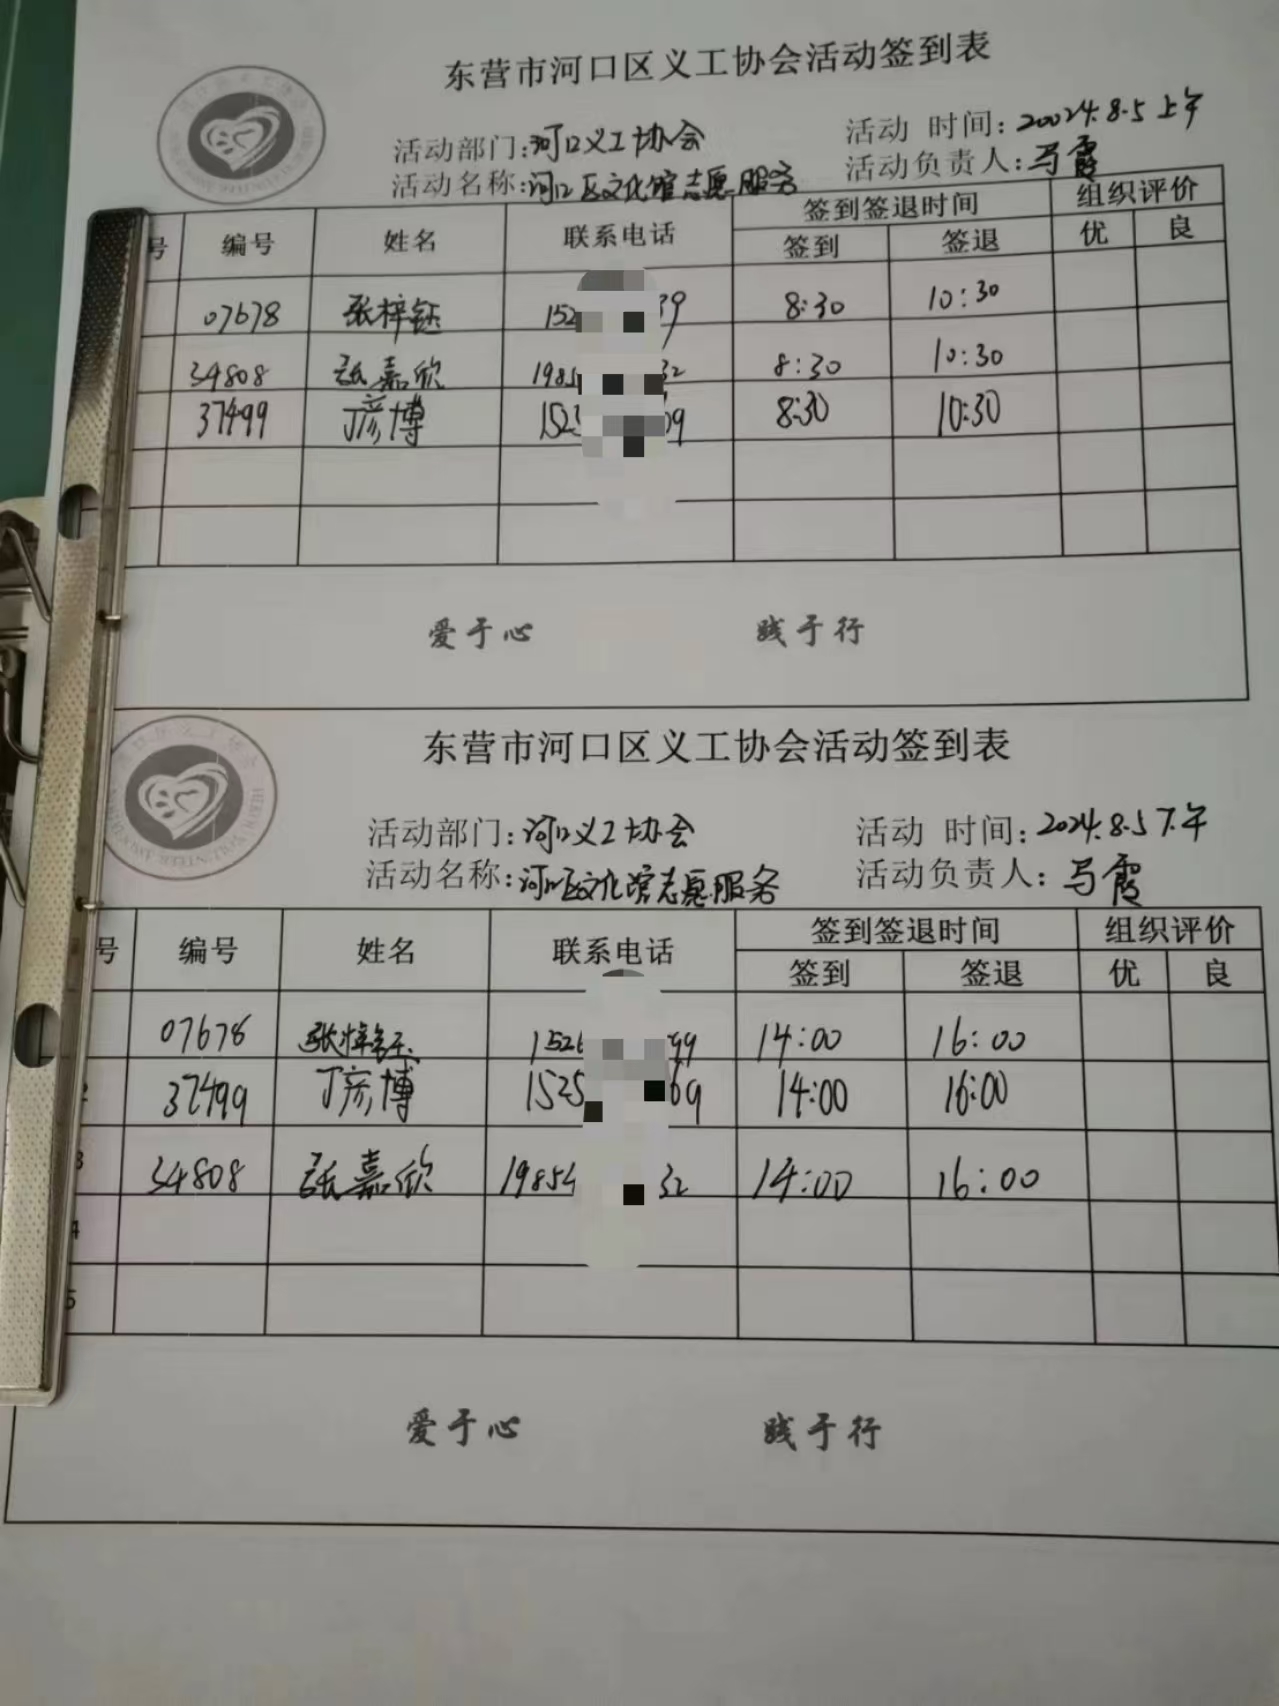 东营市河口区义工协会活动签到表
活动部门:河口义工协会 活动 时间:20024.8.5上午
活动名称:河口区文化馆志愿服务 活动负责人:马霞
号 编号 姓名 联系电话 签到签退时间 组织评价
签到 签退 优 良
07678 张梓钰 152 39 8:30 10:30
34808 张嘉欣 1985 32 8:30 10:30
37499 丁彦博 152 09 8:30 10:30
爱于心 践于行
东营市河口区义工协会活动签到表
活动部门:河口义工协会 活动 时间:2024.8.5下午
活动名称:河口区文化馆志愿服务 活动负责人:马霞
号 编号 姓名 联系电话 签到签退时间 组织评价
签到 签退 优 良
07678 张梓钰 1526 99 14:00 16:00
37499 丁彦博 1525 69 14:00 16:00
3 34808 张嘉欣 19854 32 14:00 16:00
4
5
爱于心 践于行